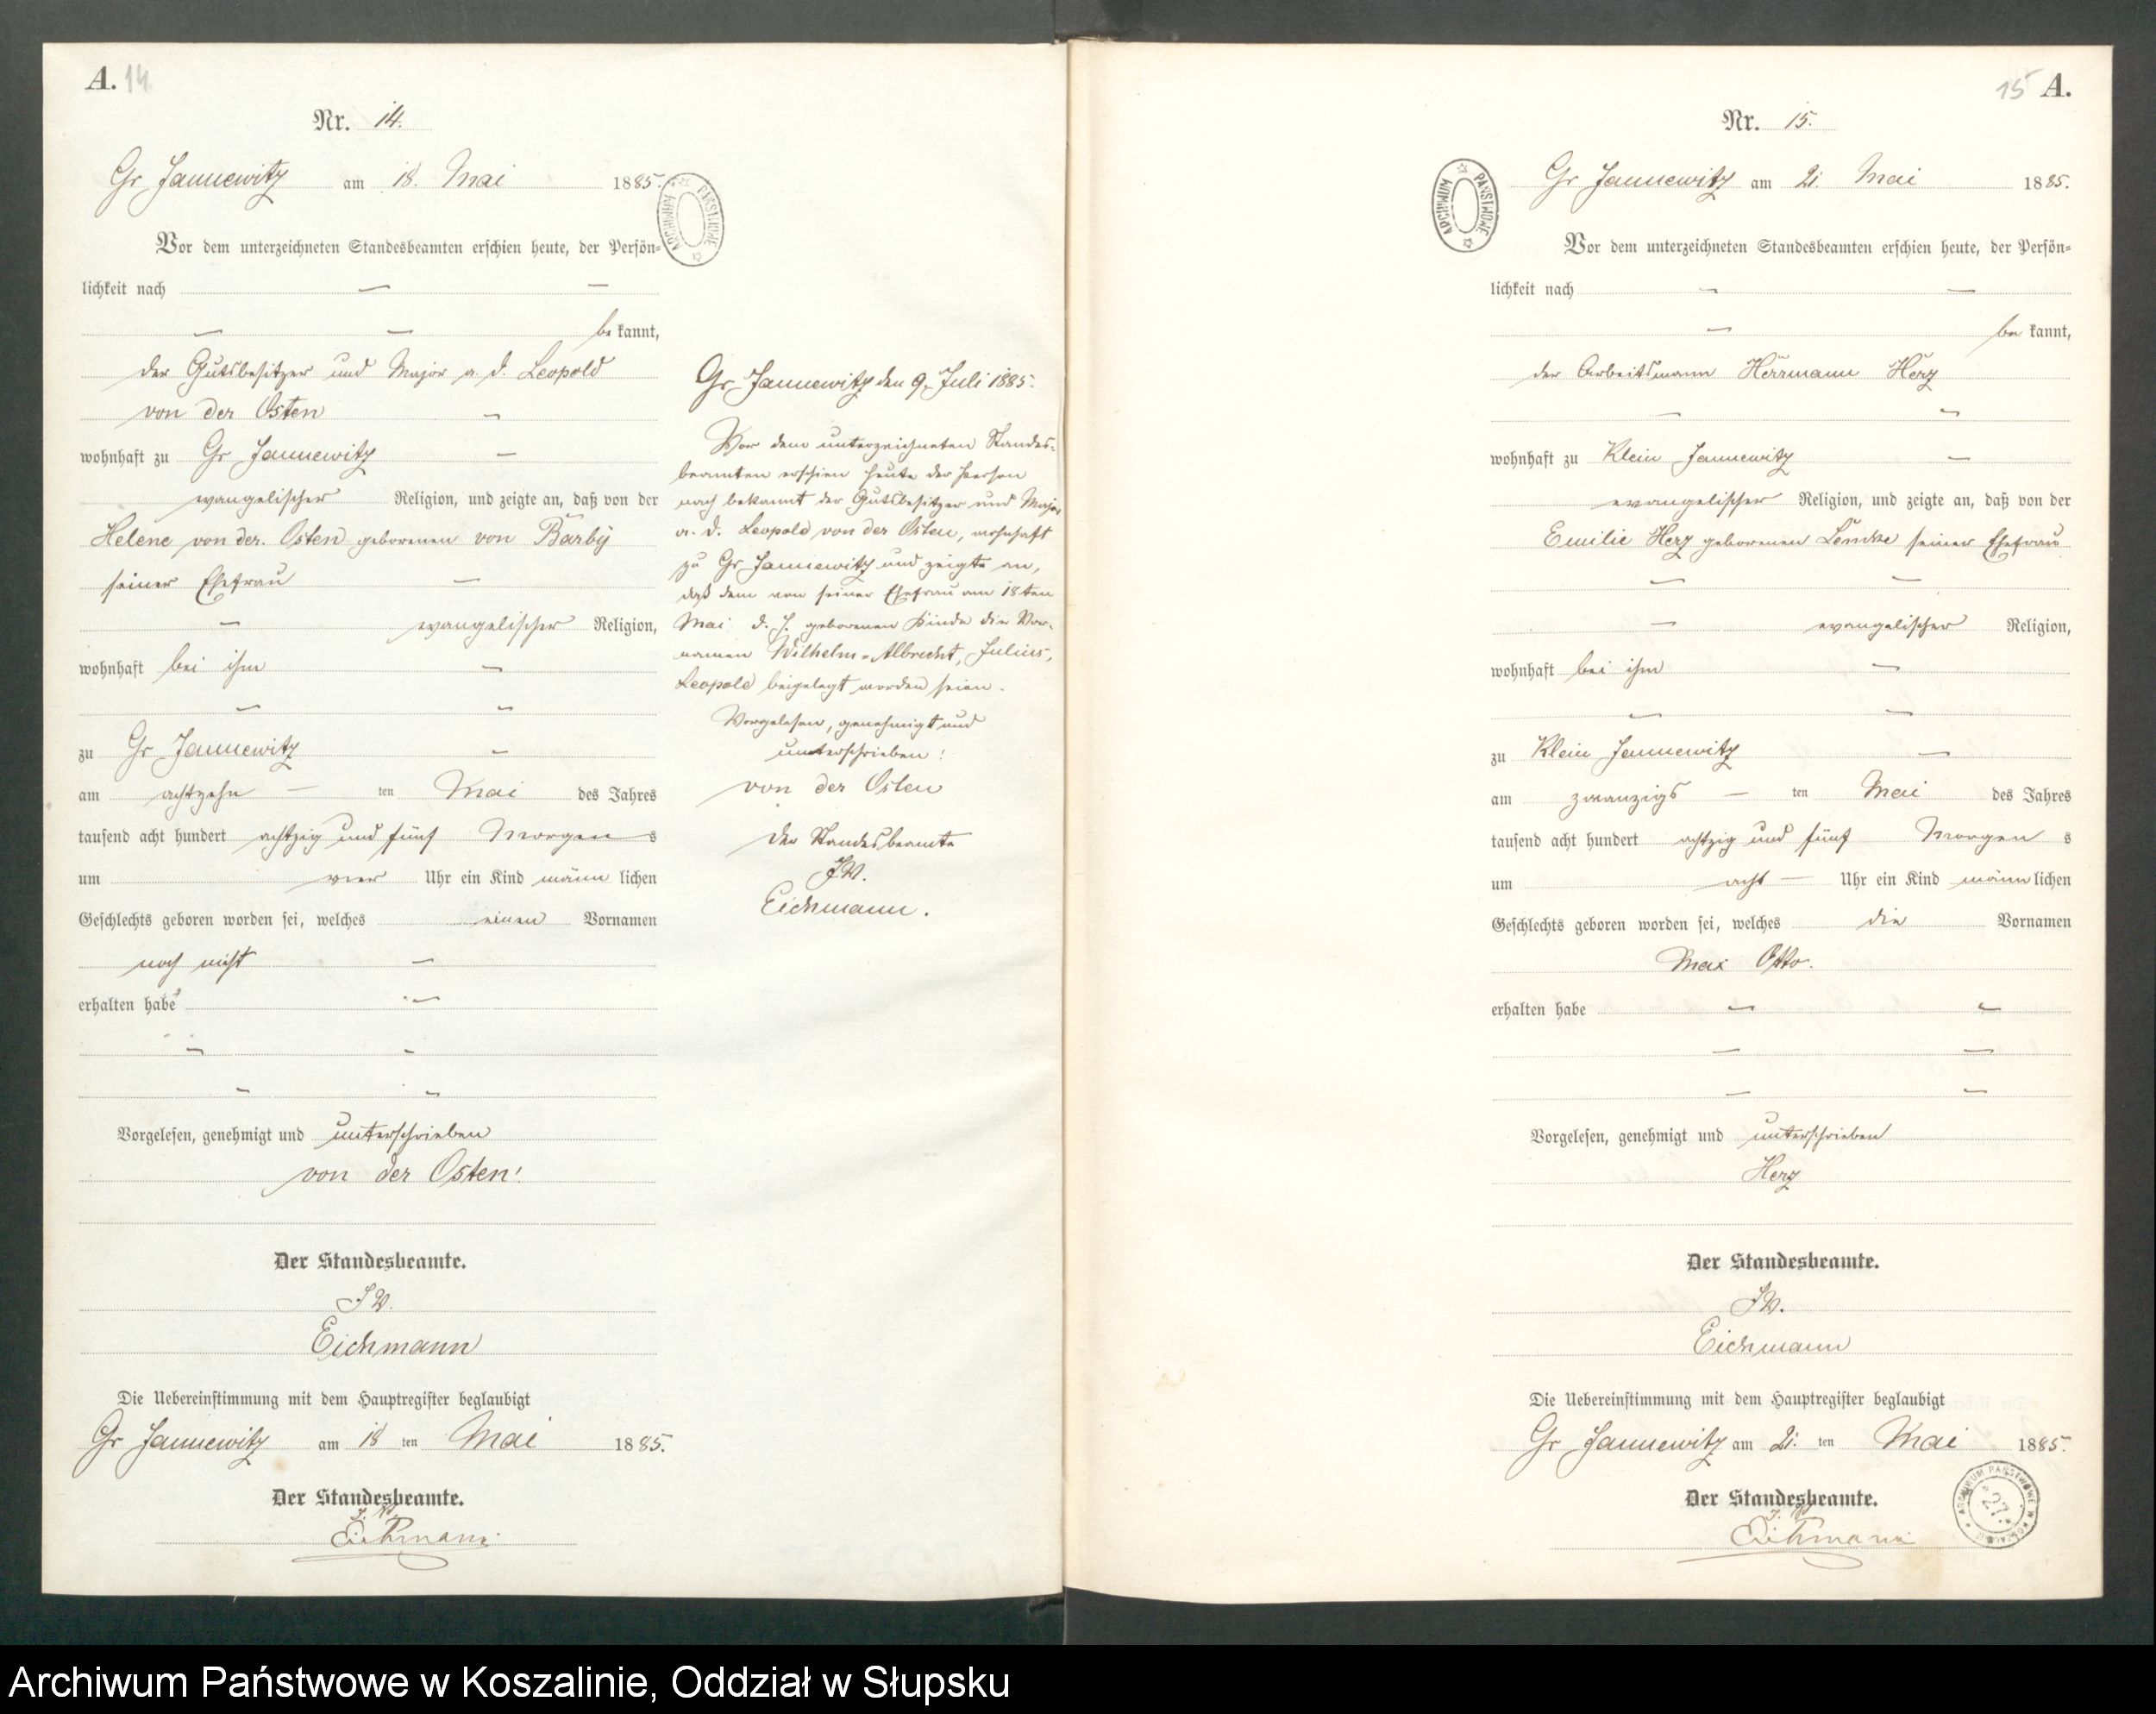 A. 14
Nr. 14.
Gr Jannewitz am 18. Mai 1885.
ARCHIWUM PAŃSTWOWE
Vor dem unterzeichneten Standesbeamten erschien heute, der Persön-
lichkeit nach — —
— — be kannt,
der Gutsbesitzer und Major a. d. Leopold
von der Osten —
wohnhaft zu Gr Jannewitz —
evangelischer Religion, und zeigte an, daß von der
Helene von der Osten geborenen von Barby
seiner Ehefrau —
— evangelischer Religion,
wohnhaft bei ihm —
— —
zu Gr Jannewitz —
am achtzehn — ten Mai des Jahres
tausend acht hundert achtzig und fünf Morgen s
um vier Uhr ein Kind männ lichen
Geschlechts geboren worden sei, welches einen Vornamen
noch nicht —
erhalten habe —
— —
— —
Vorgelesen, genehmigt und unterschrieben
von der Osten.
Der Standesbeamte.
J V.
Eichmann
Die Uebereinstimmung mit dem Hauptregister beglaubigt
Gr Jannewitz am 18 ten Mai 1885.
Der Standesbeamte.
J. V.
Eichmann
Gr Jannewitz den 9. Juli 1885.
Vor dem unterzeichneten Standes-
beamten erschien heute der Person
nach bekannt der Gutsbesitzer und Major
a. d. Leopold von der Osten, wohnhaft
zu Gr Jannewitz und zeigte an,
daß dem von seiner Ehefrau am 18ten
Mai d. J. geborenen Kinde die Vor-
namen Wilhelm-Albrecht, Julius,
Leopold beigelegt worden seien.
Vorgelesen, genehmigt und
unterschrieben:
von der Osten
Der Standesbeamte
J V.
Eichmann.
15 A.
Nr. 15.
ARCHIWUM PAŃSTWOWE
Gr Jannewitz am 21. Mai 1885.
Vor dem unterzeichneten Standesbeamten erschien heute, der Persön-
lichkeit nach — —
— be kannt,
der Arbeitsmann Herrmann Herz
— —
wohnhaft zu Klein Jannewitz —
evangelischer Religion, und zeigte an, daß von der
Emilie Herz geborenen Lemke seiner Ehefrau
— —
— evangelischer Religion,
wohnhaft bei ihm —
— —
zu Klein Jannewitz —
am zwanzigs — ten Mai des Jahres
tausend acht hundert achtzig und fünf Morgen s
um acht — Uhr ein Kind männ lichen
Geschlechts geboren worden sei, welches die Vornamen
Max Otto.
erhalten habe — —
— —
— —
Vorgelesen, genehmigt und unterschrieben
Herz
Der Standesbeamte.
J V.
Eichmann
Die Uebereinstimmung mit dem Hauptregister beglaubigt
Gr Jannewitz am 21. ten Mai 1885.
Der Standesbeamte.
J. V.
Eichmann
ARCHIWUM PAŃSTWOWE W KOSZALINIE
*27*
Archiwum Państwowe w Koszalinie, Oddział w Słupsku